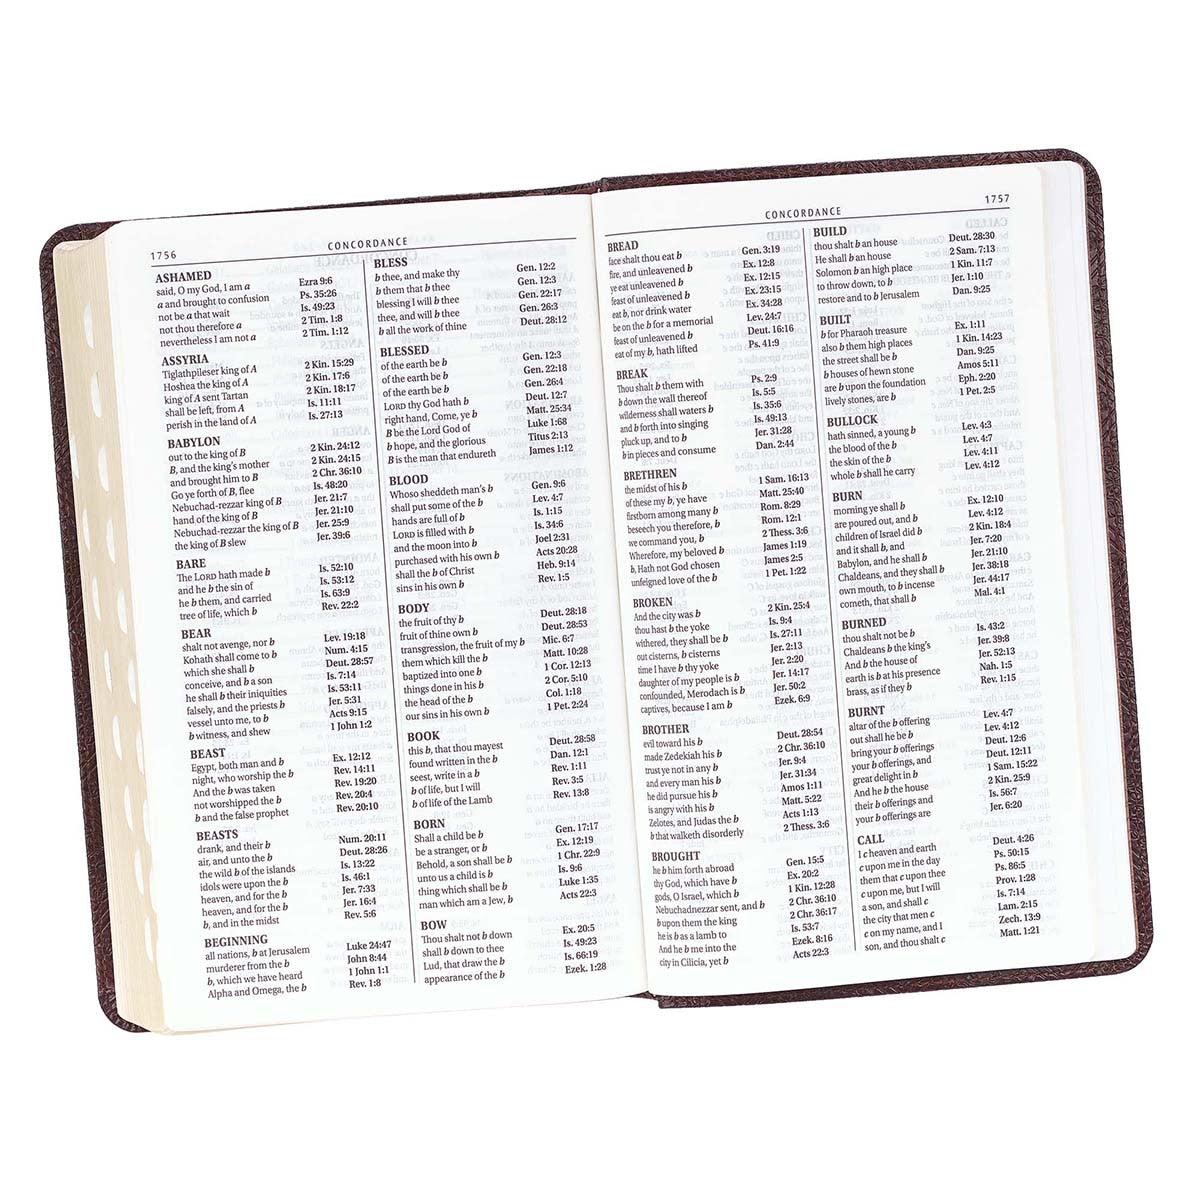 1756
CONCORDANCE
ASHAMED
said, O my God, I am a Ezra 9:6
a and brought to confusion Ps. 35:26
not be a that wait Is. 49:23
not thou therefore a 2 Tim. 1:8
nevertheless I am not a 2 Tim. 1:12
ASSYRIA
Tiglathpileser king of A 2 Kin. 15:29
Hoshea the king of A 2 Kin. 17:6
king of A sent Tartan 2 Kin. 18:17
shall be left, from A Is. 11:11
perish in the land of A Is. 27:13
BABYLON
out to the king of B 2 Kin. 24:12
B, and the king's mother 2 Kin. 24:15
and brought him to B 2 Chr. 36:10
Go ye forth of B, flee Is. 48:20
Nebuchad-rezzar king of B Jer. 21:7
hand of the king of B Jer. 21:10
Nebuchad-rezzar the king of B Jer. 25:9
the king of B slew Jer. 39:6
BARE
The LORD hath made b Is. 52:10
and he b the sin of Is. 53:12
he b them, and carried Is. 63:9
tree of life, which b Rev. 22:2
BEAR
shalt not avenge, nor b Lev. 19:18
Kohath shall come to b Num. 4:15
which she shall b Deut. 28:57
conceive, and b a son Is. 7:14
he shall b their iniquities Is. 53:11
falsely, and the priests b Jer. 5:31
vessel unto me, to b Acts 9:15
b witness, and shew 1 John 1:2
BEAST
Egypt, both man and b Ex. 12:12
night, who worship the b Rev. 14:11
And the b was taken Rev. 19:20
not worshipped the b Rev. 20:4
b and the false prophet Rev. 20:10
BEASTS
drank, and their b Num. 20:11
air, and unto the b Deut. 28:26
the wild b of the islands Is. 13:22
idols were upon the b Is. 46:1
heaven, and for the b Jer. 7:33
heaven, and for the b Jer. 16:4
b, and in the midst Rev. 5:6
BEGINNING
all nations, b at Jerusalem Luke 24:47
murderer from the b John 8:44
b, which we have heard 1 John 1:1
Alpha and Omega, the b Rev. 1:8
BLESS
b thee, and make thy Gen. 12:2
b them that b thee Gen. 12:3
blessing I will b thee Gen. 22:17
thee, and will b thee Gen. 26:3
b all the work of thine Deut. 28:12
BLESSED
of the earth be b Gen. 12:3
of the earth be b Gen. 22:18
of the earth be b Gen. 26:4
LORD thy God hath b Deut. 12:7
right hand, Come, ye b Matt. 25:34
B be the Lord God of Luke 1:68
b hope, and the glorious Titus 2:13
B is the man that endureth James 1:12
BLOOD
Whoso sheddeth man's b Gen. 9:6
shall put some of the b Lev. 4:7
hands are full of b Is. 1:15
LORD is filled with b Is. 34:6
and the moon into b Joel 2:31
purchased with his own b Acts 20:28
shall the b of Christ Heb. 9:14
sins in his own b Rev. 1:5
BODY
the fruit of thy b Deut. 28:18
fruit of thine own b Deut. 28:53
transgression, the fruit of my b Mic. 6:7
them which kill the b Matt. 10:28
baptized into one b 1 Cor. 12:13
things done in his b 2 Cor. 5:10
the head of the b Col. 1:18
our sins in his own b 1 Pet. 2:24
BOOK
this b, that thou mayest Deut. 28:58
found written in the b Dan. 12:1
seest, write in a b Rev. 1:11
b of life, but I will Rev. 3:5
b of life of the Lamb Rev. 13:8
BORN
Shall a child be b Gen. 17:17
be a stranger, or b Ex. 12:19
Behold, a son shall be b 1 Chr. 22:9
unto us a child is b Is. 9:6
thing which shall be b Luke 1:35
man which am a Jew, b Acts 22:3
BOW
Thou shalt not b down Ex. 20:5
shall b down to thee Is. 49:23
Lud, that draw the b Is. 66:19
appearance of the b Ezek. 1:28
CONCORDANCE
1757
BREAD
face shalt thou eat b Gen. 3:19
fire, and unleavened b Ex. 12:8
ye eat unleavened b Ex. 12:15
feast of unleavened b Ex. 23:15
eat b, nor drink water Ex. 34:28
be on the b for a memorial Lev. 24:7
feast of unleavened b Deut. 16:16
eat of my b, hath lifted Ps. 41:9
BREAK
Thou shalt b them with Ps. 2:9
b down the wall thereof Is. 5:5
wilderness shall waters b Is. 35:6
and b forth into singing Is. 49:13
pluck up, and to b Jer. 31:28
b in pieces and consume Dan. 2:44
BRETHREN
the midst of his b 1 Sam. 16:13
of these my b, ye have Matt. 25:40
firstborn among many b Rom. 8:29
beseech you therefore, b Rom. 12:1
we command you, b 2 Thess. 3:6
Wherefore, my beloved b James 1:19
b, Hath not God chosen James 2:5
unfeigned love of the b 1 Pet. 1:22
BROKEN
And the city was b 2 Kin. 25:4
thou hast b the yoke Is. 9:4
withered, they shall be b Is. 27:11
out cisterns, b cisterns Jer. 2:13
time I have b thy yoke Jer. 2:20
daughter of my people is b Jer. 14:17
confounded, Merodach is b Jer. 50:2
captives, because I am b Ezek. 6:9
BROTHER
evil toward his b Deut. 28:54
made Zedekiah his b 2 Chr. 36:10
trust ye not in any b Jer. 9:4
and every man his b Jer. 31:34
he did pursue his b Amos 1:11
is angry with his b Matt. 5:22
Zelotes, and Judas the b Acts 1:13
b that walketh disorderly 2 Thess. 3:6
BROUGHT
he b him forth abroad Gen. 15:5
thy God, which have b Ex. 20:2
gods, O Israel, which b 1 Kin. 12:28
Nebuchadnezzar sent, and b 2 Chr. 36:10
b upon them the king 2 Chr. 36:17
he is b as a lamb to Is. 53:7
And he b me into the Ezek. 8:16
city in Cilicia, yet b Acts 22:3
BUILD
thou shalt b an house Deut. 28:30
He shall b an house 2 Sam. 7:13
Solomon b an high place 1 Kin. 11:7
to throw down, to b Jer. 1:10
restore and to b Jerusalem Dan. 9:25
BUILT
b for Pharaoh treasure Ex. 1:11
also b them high places 1 Kin. 14:23
the street shall be b Dan. 9:25
b houses of hewn stone Amos 5:11
are b upon the foundation Eph. 2:20
lively stones, are b 1 Pet. 2:5
BULLOCK
hath sinned, a young b Lev. 4:3
the blood of the b Lev. 4:7
the skin of the b Lev. 4:11
whole b shall he carry Lev. 4:12
BURN
morning ye shall b Ex. 12:10
are poured out, and b Lev. 4:12
children of Israel did b 2 Kin. 18:4
and it shall b, and Jer. 7:20
Babylon, and he shall b Jer. 21:10
Chaldeans, and they shall b Jer. 38:18
own mouth, to b incense Jer. 44:17
cometh, that shall b Mal. 4:1
BURNED
thou shalt not be b Is. 43:2
Chaldeans b the king's Jer. 39:8
And b the house of Jer. 52:13
earth is b at his presence Nah. 1:5
brass, as if they b Rev. 1:15
BURNT
altar of the b offering Lev. 4:7
out shall he be b Lev. 4:12
bring your b offerings Deut. 12:6
your b offerings, and Deut. 12:11
great delight in b 1 Sam. 15:22
And he b the house 2 Kin. 25:9
their b offerings and Is. 56:7
your b offerings are Jer. 6:20
CALL
I c heaven and earth Deut. 4:26
c upon me in the day Ps. 50:15
them that c upon thee Ps. 86:5
c upon me, but I will Prov. 1:28
a son, and shall c Is. 7:14
the city that men c Lam. 2:15
c on my name, and I Zech. 13:9
son, and thou shalt c Matt. 1:21